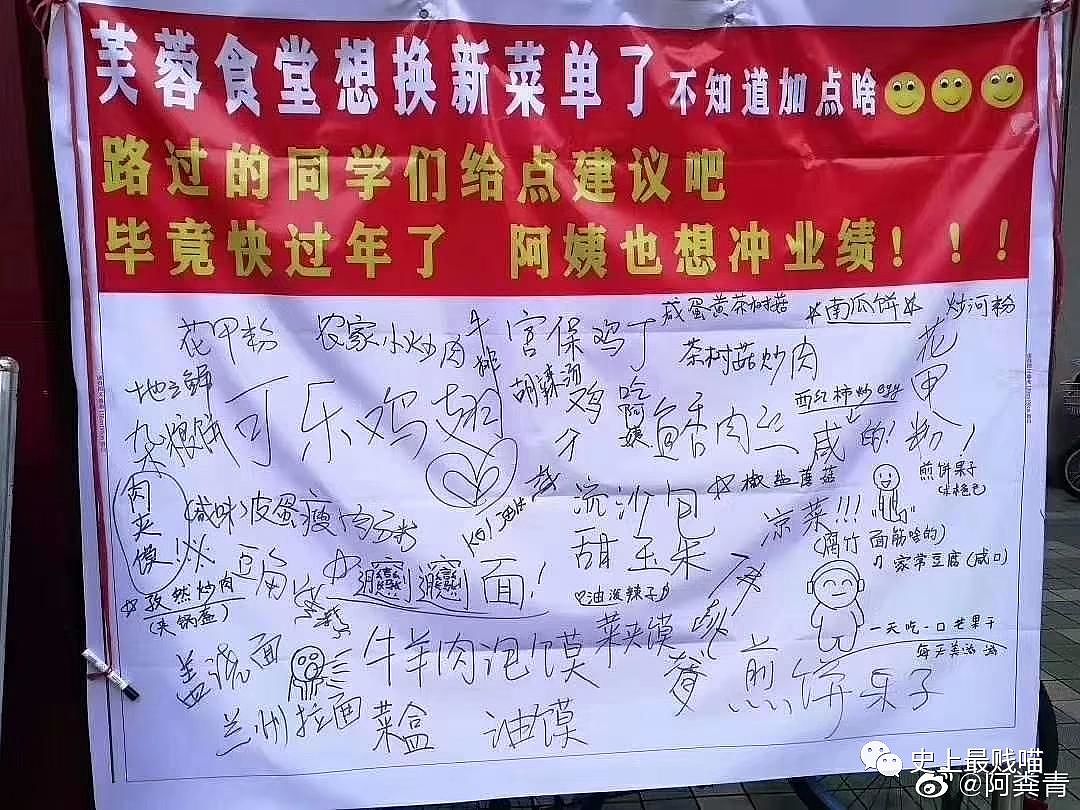 芙蓉食堂想换新菜单了 不知道加点啥
路过的同学们给点建议吧
毕竟快过年了 阿姨也想冲业绩！！！
花甲粉
农家小炒肉
牛排
宫保鸡丁
咸蛋黄茶树菇
南瓜饼
炒河粉
茶树菇炒肉
花甲粉！
地三鲜
杂粮饼
可乐鸡翅
胡辣汤
鸡
吃阿姨
鱼香肉丝
西红柿炒egg
咸的！
肉夹馍！
(咸味)皮蛋瘦肉粥
流沙包
椒盐蘑菇
煎饼果子
甜玉米
凉菜!!!
(腐竹 面筋啥的)
家常豆腐(咸口)
孜然炒肉
(夹锅盔)
面！
油泼辣子
一天吃一口芒果干
盖浇面
牛羊肉泡馍
菜夹馍
煎饼果子
兰州拉面
菜盒
油馍
史上最贱喵
@阿粪青